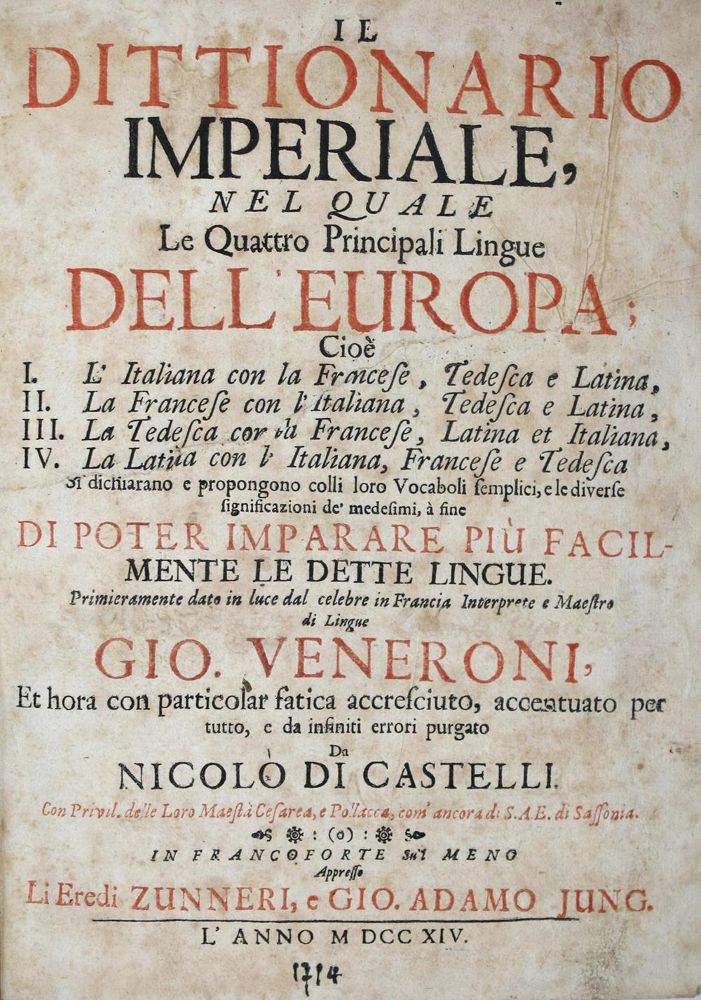 IL
DITTIONARIO
IMPERIALE,
NEL QUALE
Le Quattro Principali Lingue
DELL'EUROPA;
Cioè
I. L' Italiana con la Franceſe, Tedeſca e Latina,
II. La Franceſe con l'Italiana, Tedeſca e Latina,
III. La Tedeſca con la Franceſe, Latina et Italiana,
IV. La Latina con l' Italiana, Franceſe e Tedeſca
Si dichiarano e propongono colli loro Vocaboli ſemplici, e le diverſe
ſignificazioni de' medeſimi, à fine
DI POTER IMPARARE PIÙ FACIL-
MENTE LE DETTE LINGUE.
Primieramente dato in luce dal celebre in Francia Interprete e Maeſtro
di Lingue
GIO. VENERONI,
Et hora con particolar fatica accreſciuto, accentuato per
tutto, e da infiniti errori purgato
Da
NICOLÒ DI CASTELLI.
Con Privil. delle Loro Maeſtà Ceſarea, e Pollacca, com' ancora di S.A.E. di Saſſonia.
: (o) :
IN FRANCOFORTE Sul MENO
Appreſſo
Li Eredi ZUNNERI, e GIO. ADAMO JUNG.
L' ANNO M DCC XIV.
1714